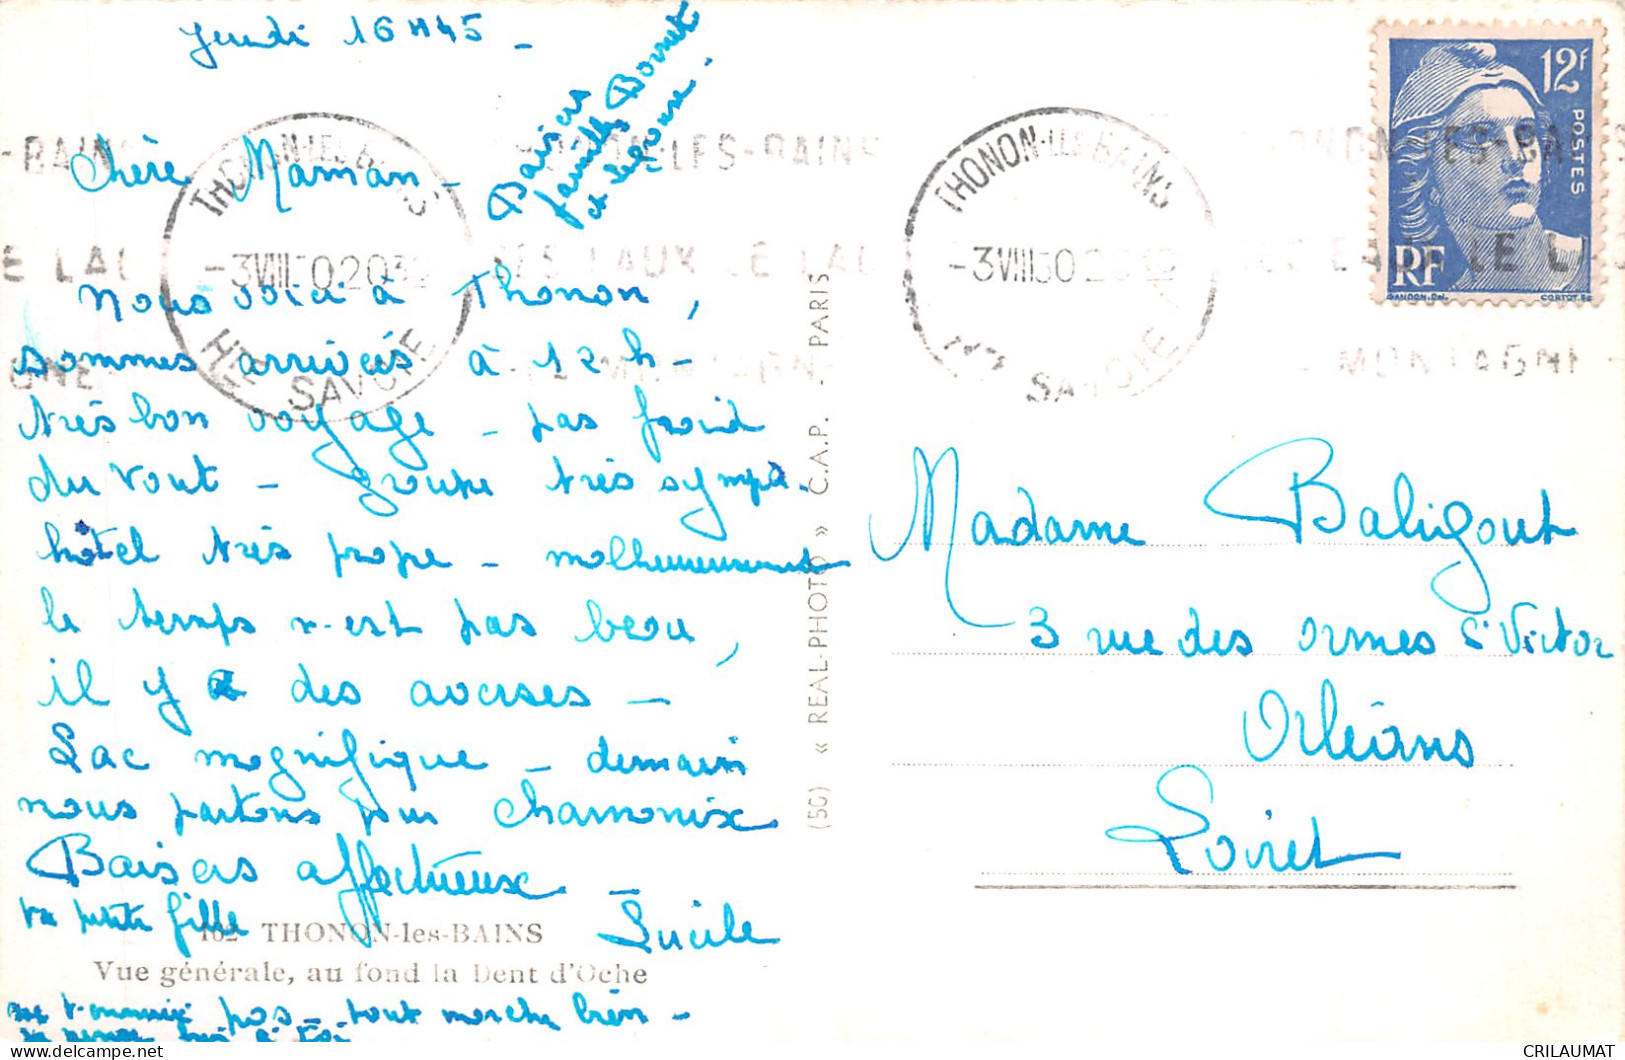 Jeudi 16H45 -
Baisers
famille Bonnet
et
Chère Maman -
Nous voici à Thonon,
sommes arrivés à 12 h -
très bon voyage - pas froid
du tout - groupe très sympa.
hôtel très propre - malheureusement
le temps n'est pas beau,
il y a des averses -
Lac magnifique - demain
nous partons pour Chamonix
Baisers affectueux -
ta petite fille
Lucile
162 - THONON-les-BAINS
Vue générale, au fond la Dent d'Oche
pas - tout marche bien -
(50) « REAL-PHOTO » C.A.P. - PARIS
THONON-LES-BAINS
-3VIII50 20
HTE SAVOIE
THONON-LES-BAINS
-3VIII50
SAVOIE
THONON-LES-BAINS
LE LAC
MONTAGNE
12F
POSTES
RF
GANDON.DEL.
CORTOT.SC
Madame Baligout
3 rue des ormes St Victor
Orléans
Loiret
CRILAUMAT